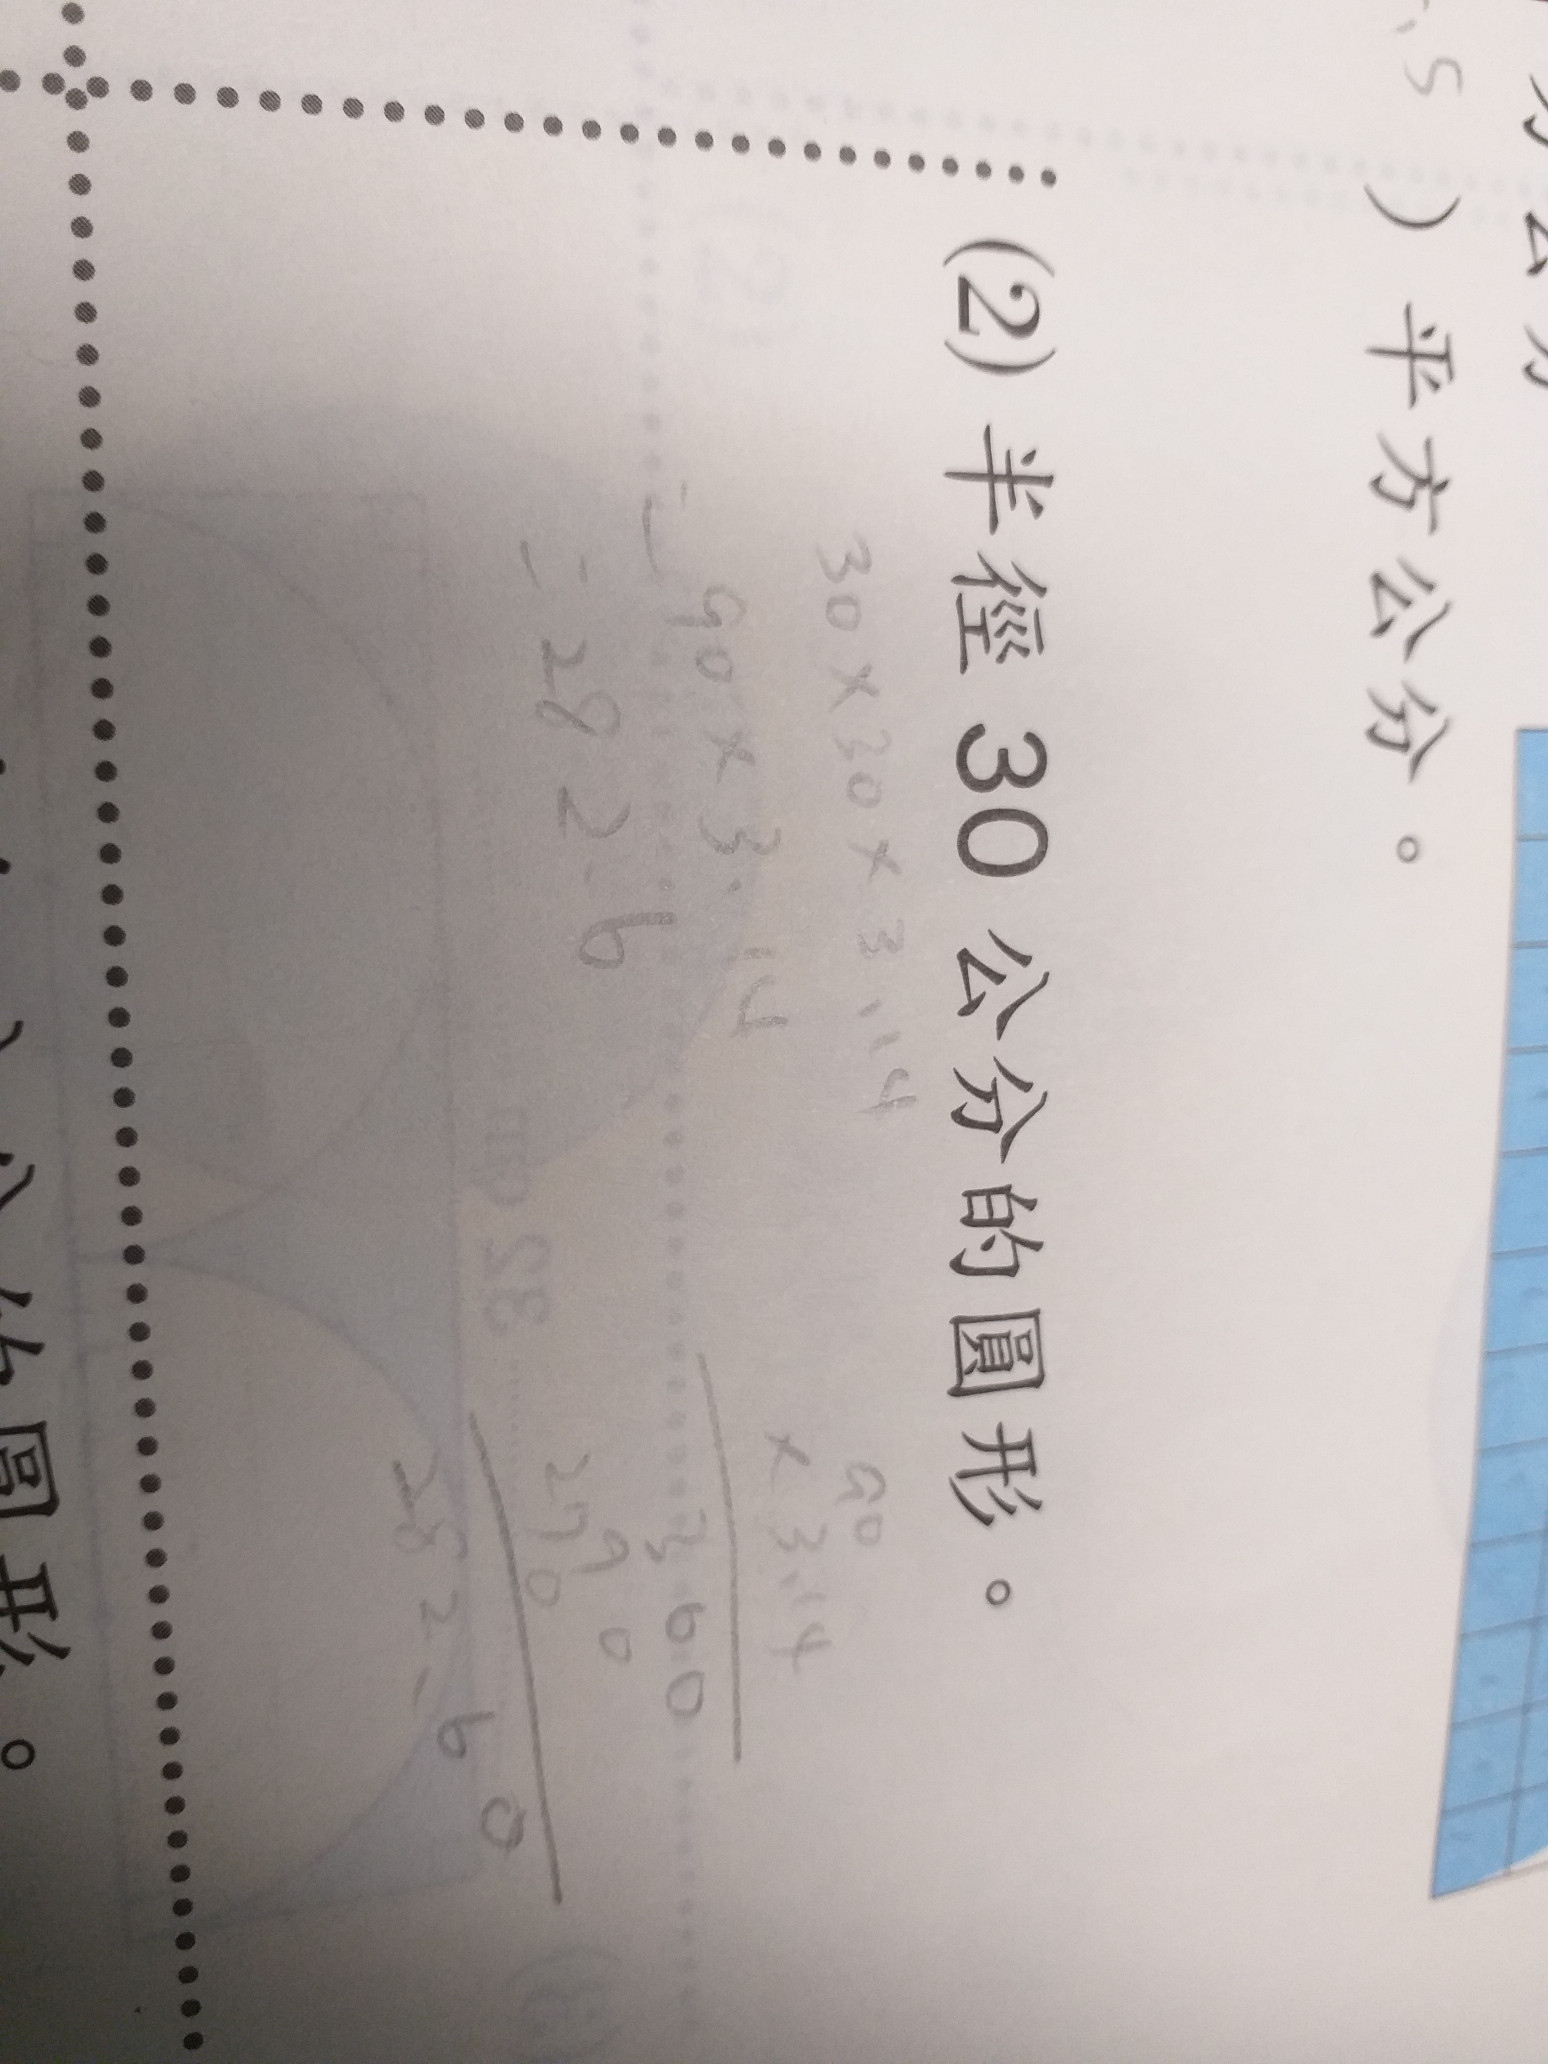 .5 ) 平方公分。
(2) 半徑 30 公分的圓形。
30 × 30 × 3.14
= 90 × 3.14
= 282.6
90
× 3.14
3 60
9 0
270
282.60
公分
圓形。